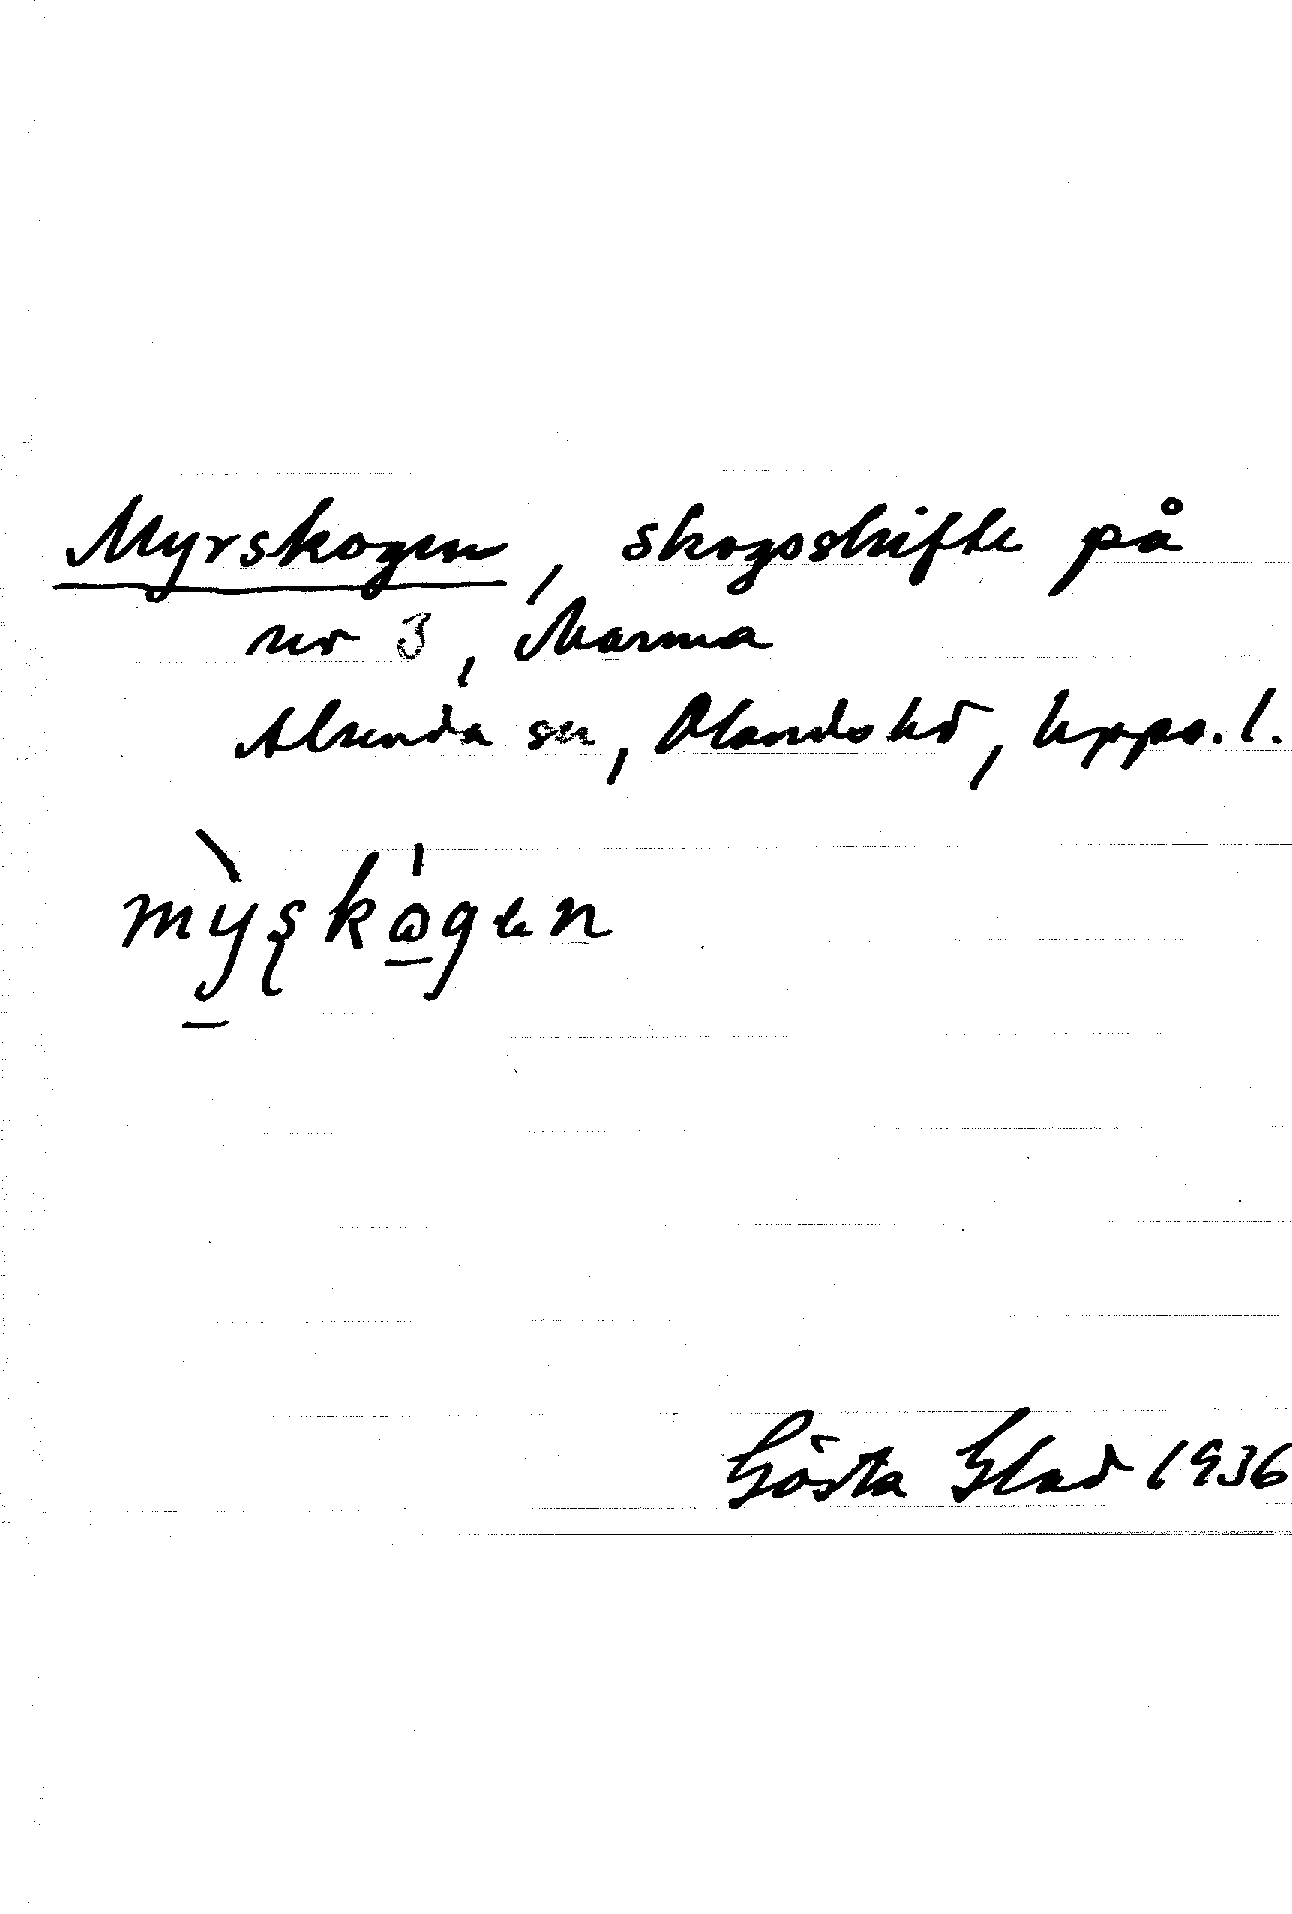 Myrskogen, skogsskifte på
nr 3, Marma
Alunda sn, Olands hd, Upps. l.
mỳʂkɷ̀gen
Gösta Glad 1936